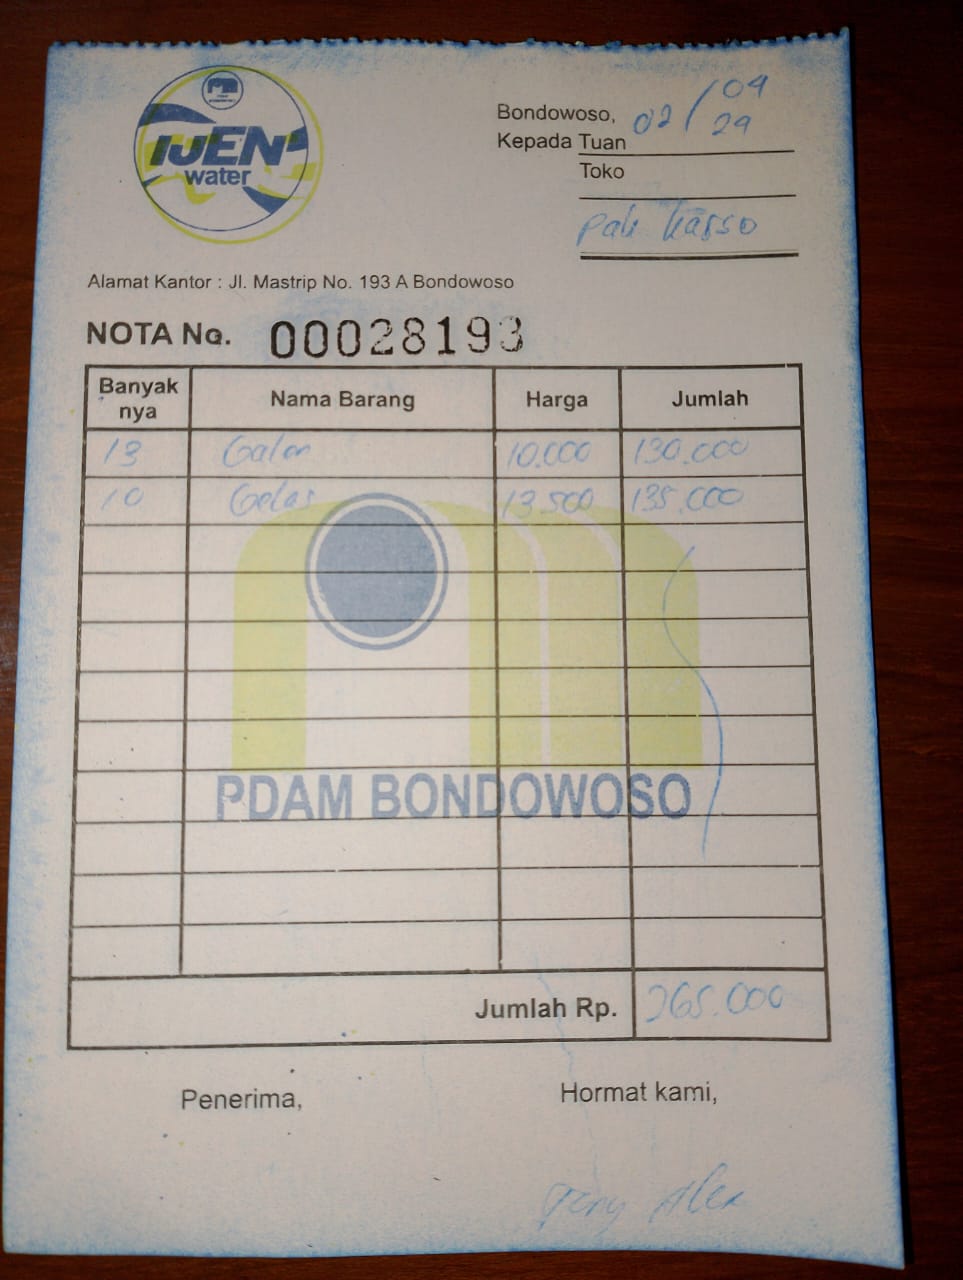 IJEN
water
Bondowoso, 02/04
29
Kepada Tuan
Toko
Pak Kasso
Alamat Kantor : Jl. Mastrip No. 193 A Bondowoso
NOTA No. 00028193
Banyak nya Nama Barang Harga Jumlah
13 Galon 10.000 130.000
10 Gelas 13.500 135.000
PDAM BONDOWOSO
Jumlah Rp. 265.000
Penerima, Hormat kami,
Alex